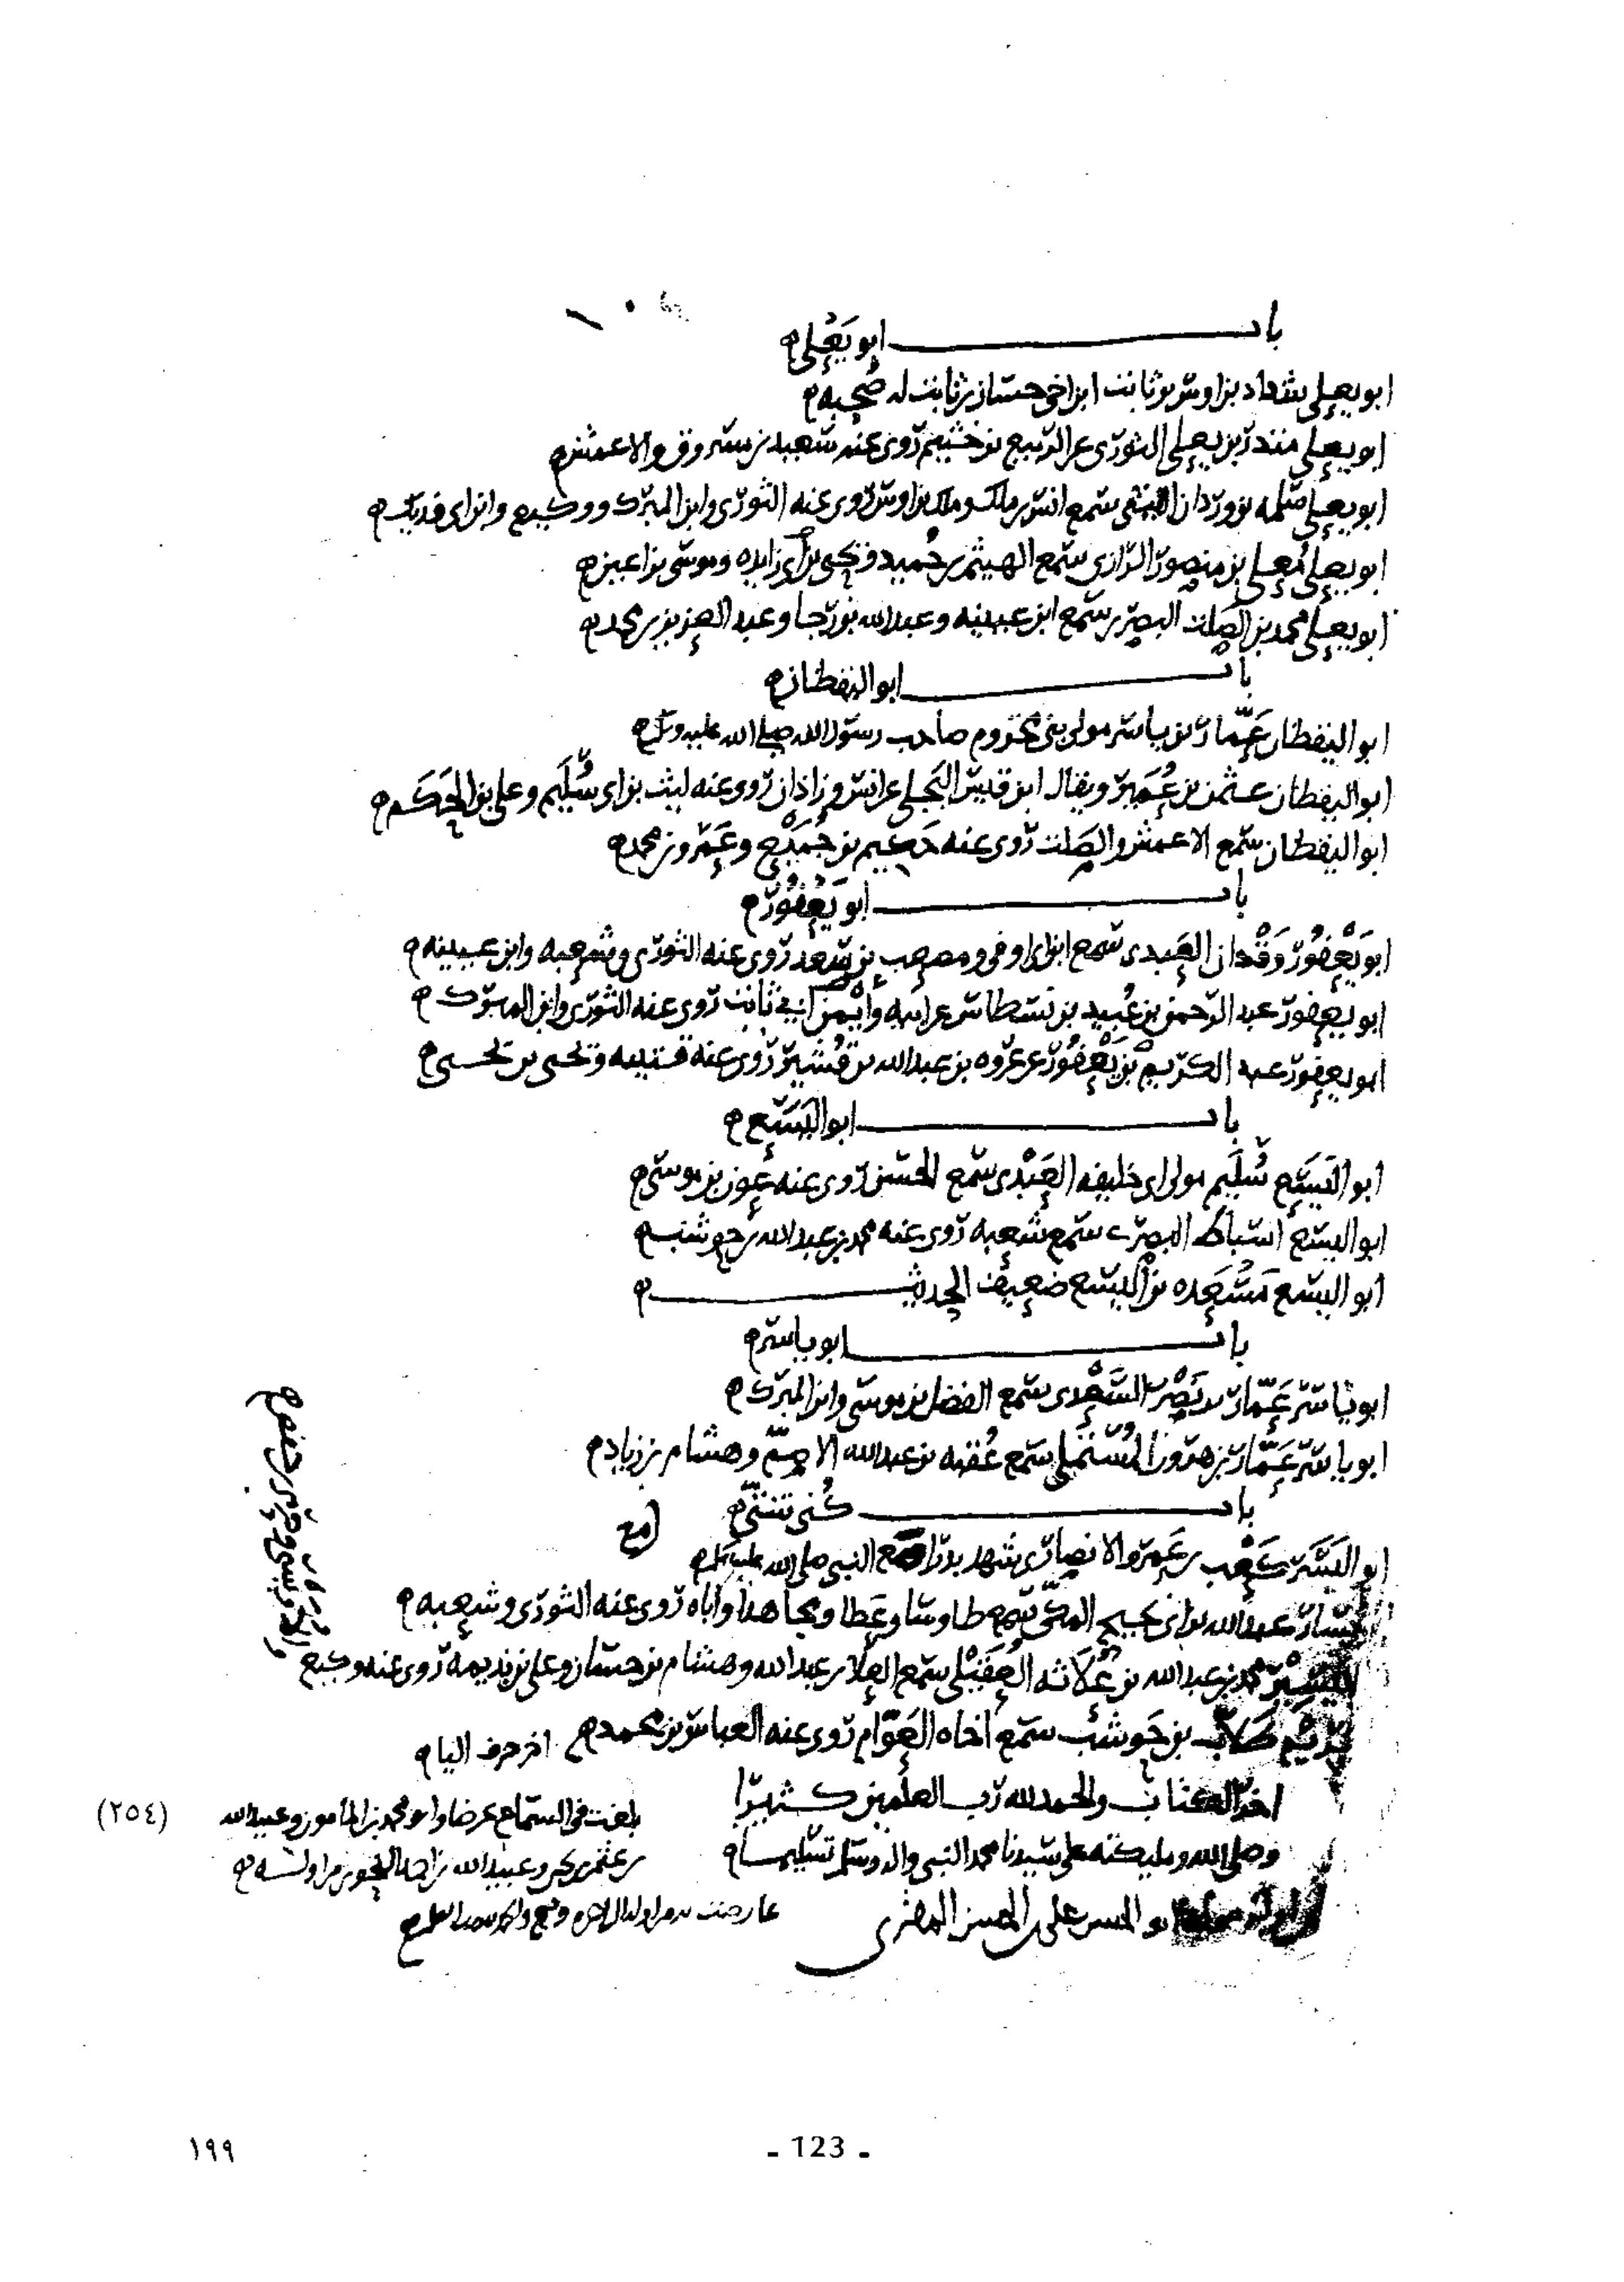 باب ابو يعلى
ابو يعلى شداد بن اوس بن ثابت ابن اخى حسان بن ثابت له صحبه
ابو يعلى منذر بن يعلى الثورى عن الربيع بن خثيم روى عنه سعيد بن مسروق والاعمش
ابو يعلى سلمه بن وردان الليثى سمع انس بن ملك وملك بن اوس روى عنه الثورى وابن المبرك ووكيع وابن ابى فديك
ابو يعلى معلى بن منصور الرازى سمع الهيثم بن حميد ويحيى بن ابى زايده وموسى بن اعين
ابو يعلى محمد بن الصلت البصرى سمع ابن عيينه وعبد الله بن رجا وعبد العزيز بن محمد
باب ابو اليقظان
ابو اليقظان عمار بن ياسر مولى بنى مخزوم صاحب رسول الله صلى الله عليه وسلم
ابو اليقظان عثمن بن عمير ويقال ابن قيس البجلى عن انس وزاذان روى عنه ليث بن ابى سليم وعلى بن الحكم
ابو اليقظان سمع الاعمش والصلت روى عنه حكيم بن جميع وعمرو بن محمد
باب ابو يعفور
ابو يعفور وقدان العبدى سمع ابن ابى اوفى ومصعب بن سعد روى عنه الثورى وشعبه وابن عيينه
ابو يعفور عبد الرحمن بن عبيد بن نسطاس عن ابيه وايمن ابى ثابت روى عنه الثورى وابن المبرك
ابو يعفور عبد الكريم بن يعفور عن عروه بن عبد الله بن قشير روى عنه قتيبه ويحيى بن يحيى
باب ابو اليسع
ابو اليسع سليم مولى ابى خليفه العبدى سمع الحسن روى عنه عون بن موسى
ابو اليسع اسباط البصرى سمع شعبه روى عنه محمد بن عبد الله بن حوشب
ابو اليسع مسعده بن اليسع ضعيف الحديث
باب ابو ياسر
ابو ياسر عمار بن نصر السعدى سمع الفضل بن موسى وابن المبرك
ابو ياسر عمار بن هرون المستملى سمع عقبه بن عبد الله الاصم وهشام بن زياد
باب كنى شتى
ابو اليسر كعب بن عمرو الانصارى شهد بدرا مع النبى صلى الله عليه وسلم
يسار عبد الله بن ابى نجيح المكى سمع طاوسا وعطا ومجاهدا واباه روى عنه الثورى وشعبه
اليسير محمد بن عبد الله بن علاثه العقيلى سمع العلا بن عبد الله وهشام بن حسان وعلى بن بذيمه روى عنه وكيع
كلاب بن حوشب سمع اخاه العوام روى عنه العباس بن محمد اخر حرف اليا
اخر الكتاب والحمد لله رب العلمين كثيرا
وصلى الله ومليكته على سيدنا محمد النبى واله وسلم تسليما
بلغت فى السماع عرضا وابو محمد بن المامون وعبيد الله
بن عثمن وعبيد الله بن احمد النحوى من اوله
ابو الحسن على بن الحسن المقرى
(٢٥٤)
- 123 -
١٩٩